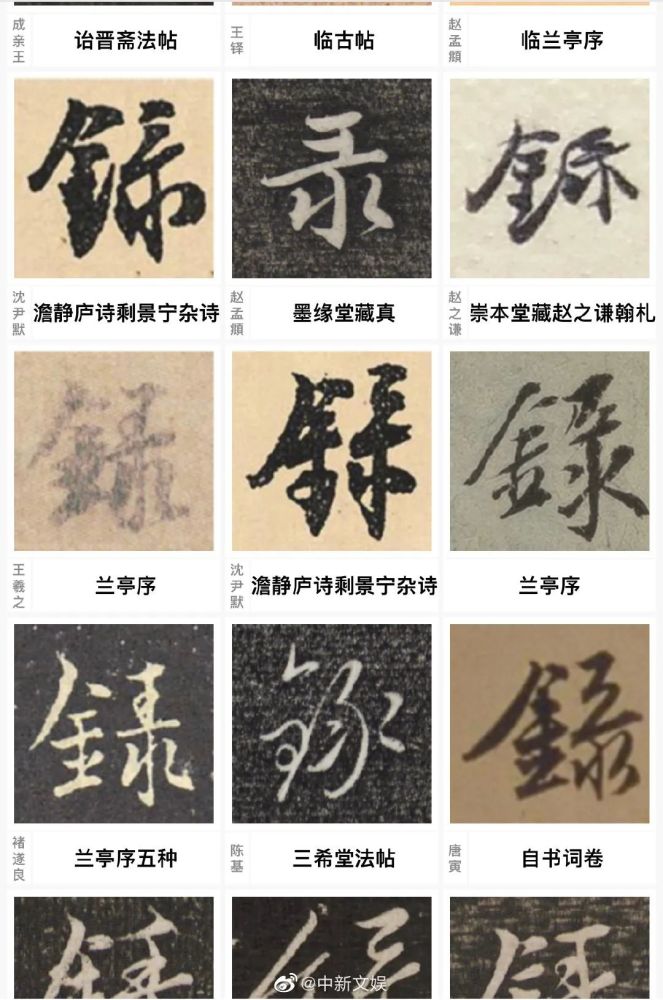 成亲王 诒晋斋法帖
王铎 临古帖
赵孟頫 临兰亭序
録
录
録
沈尹默 澹静庐诗剩景宁杂诗
赵孟頫 墨缘堂藏真
赵之谦 崇本堂藏赵之谦翰札
録
録
録
王羲之 兰亭序
沈尹默 澹静庐诗剩景宁杂诗
兰亭序
録
録
録
褚遂良 兰亭序五种
陈基 三希堂法帖
唐寅 自书词卷
@中新文娱